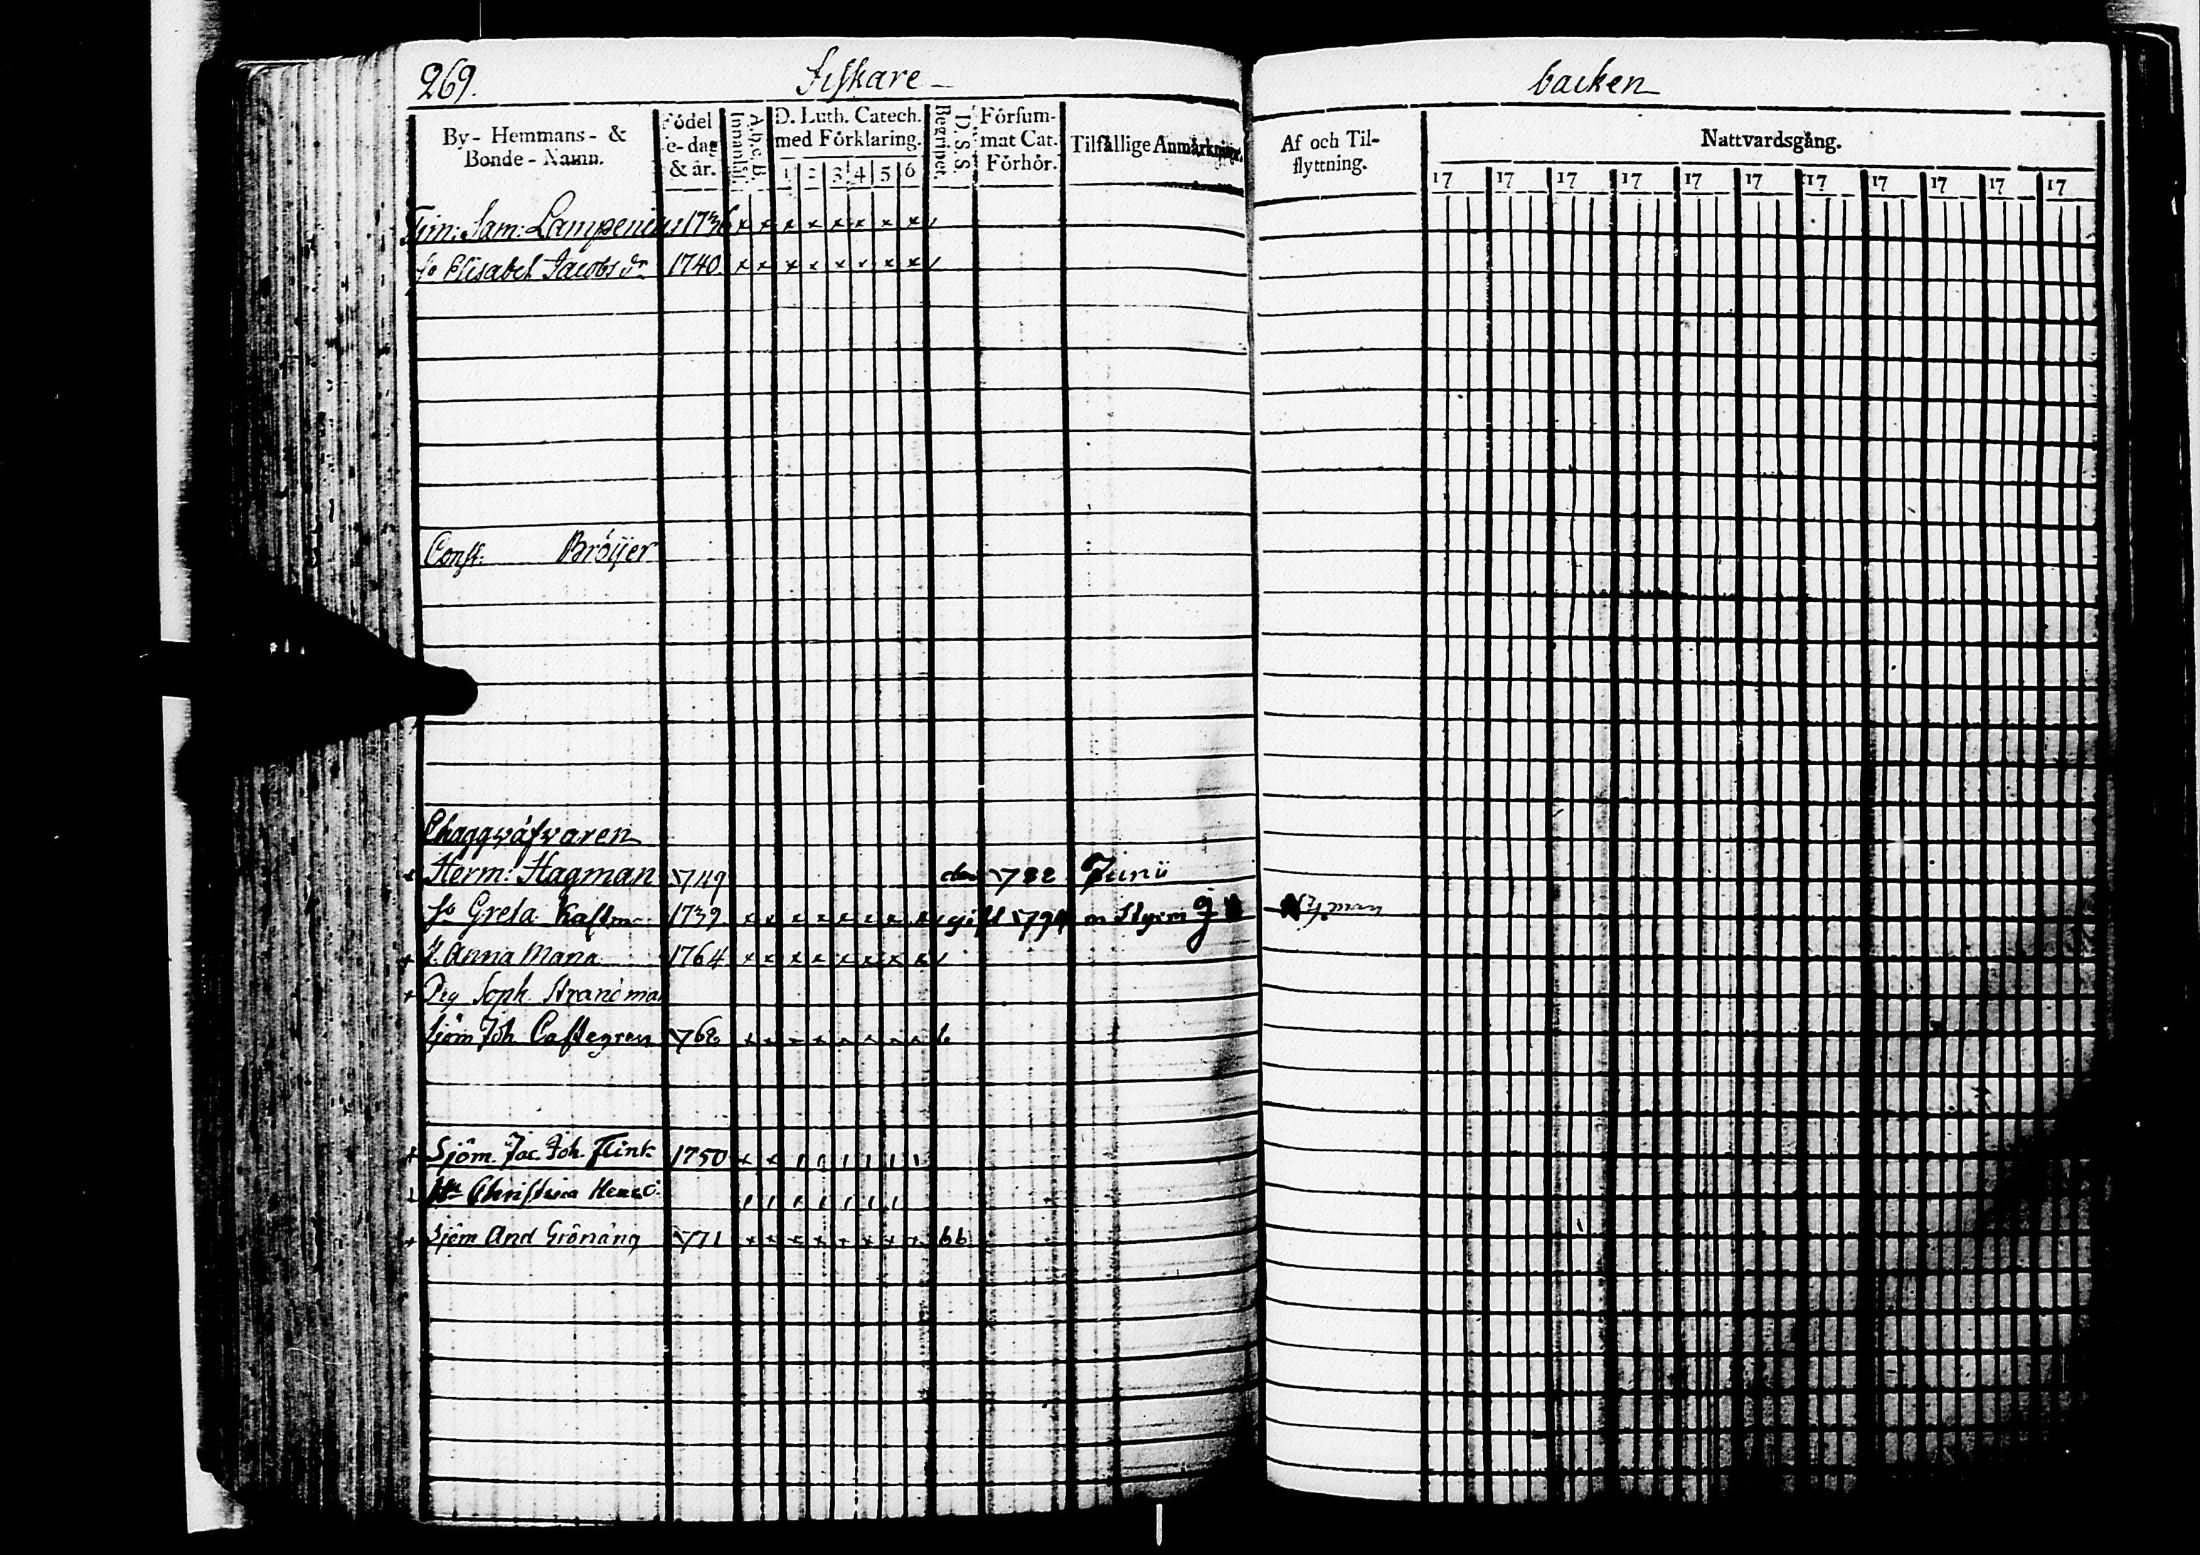 269. Fiskare - backen
By - Hemmans - & Bonde - Namn.
Födelse-dag & år.
A.b.c.B. Innantil.
D. Luth. Catech. med Förklaring.
1 2 3 4 5 6
D. S. S. Begripet.
Försummat Cat. Förhör.
Tilfällige Anmärkningar.
Af och Tilflyttning.
Nattvardsgång.
17 17 17 17 17 17 17 17 17 17 17
Tim: Sam: Lampenius 1736 x x x x x x x x
Elisabet Jacobs dr 1740 x x x x x x x x
Const. Bröijer
Herm: Hagman 749 782 Junii
Greta 1739 x x x x x x x x gift 794 m Styrm
Anna Maria 1764 x x x x x x x x
Pig Soph. Strandman
Sjöm Joh Castegren
Sjöm. Jac Joh. Flink 1750 x x
Christina
Sjöm And Grönäng 771 x x x x x x x x